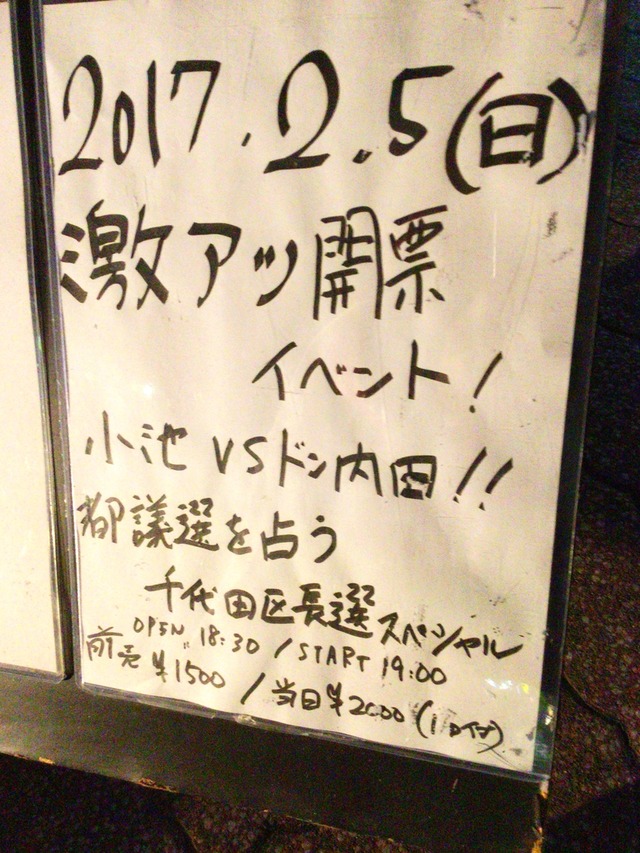 2017.2.5(日)
激アツ開票
イベント!
小池VSドン内田!!
都議選を占う
千代田区長選スペシャル
OPEN 18:30 / START 19:00
前売¥1500 / 当日¥2000 (1D付)